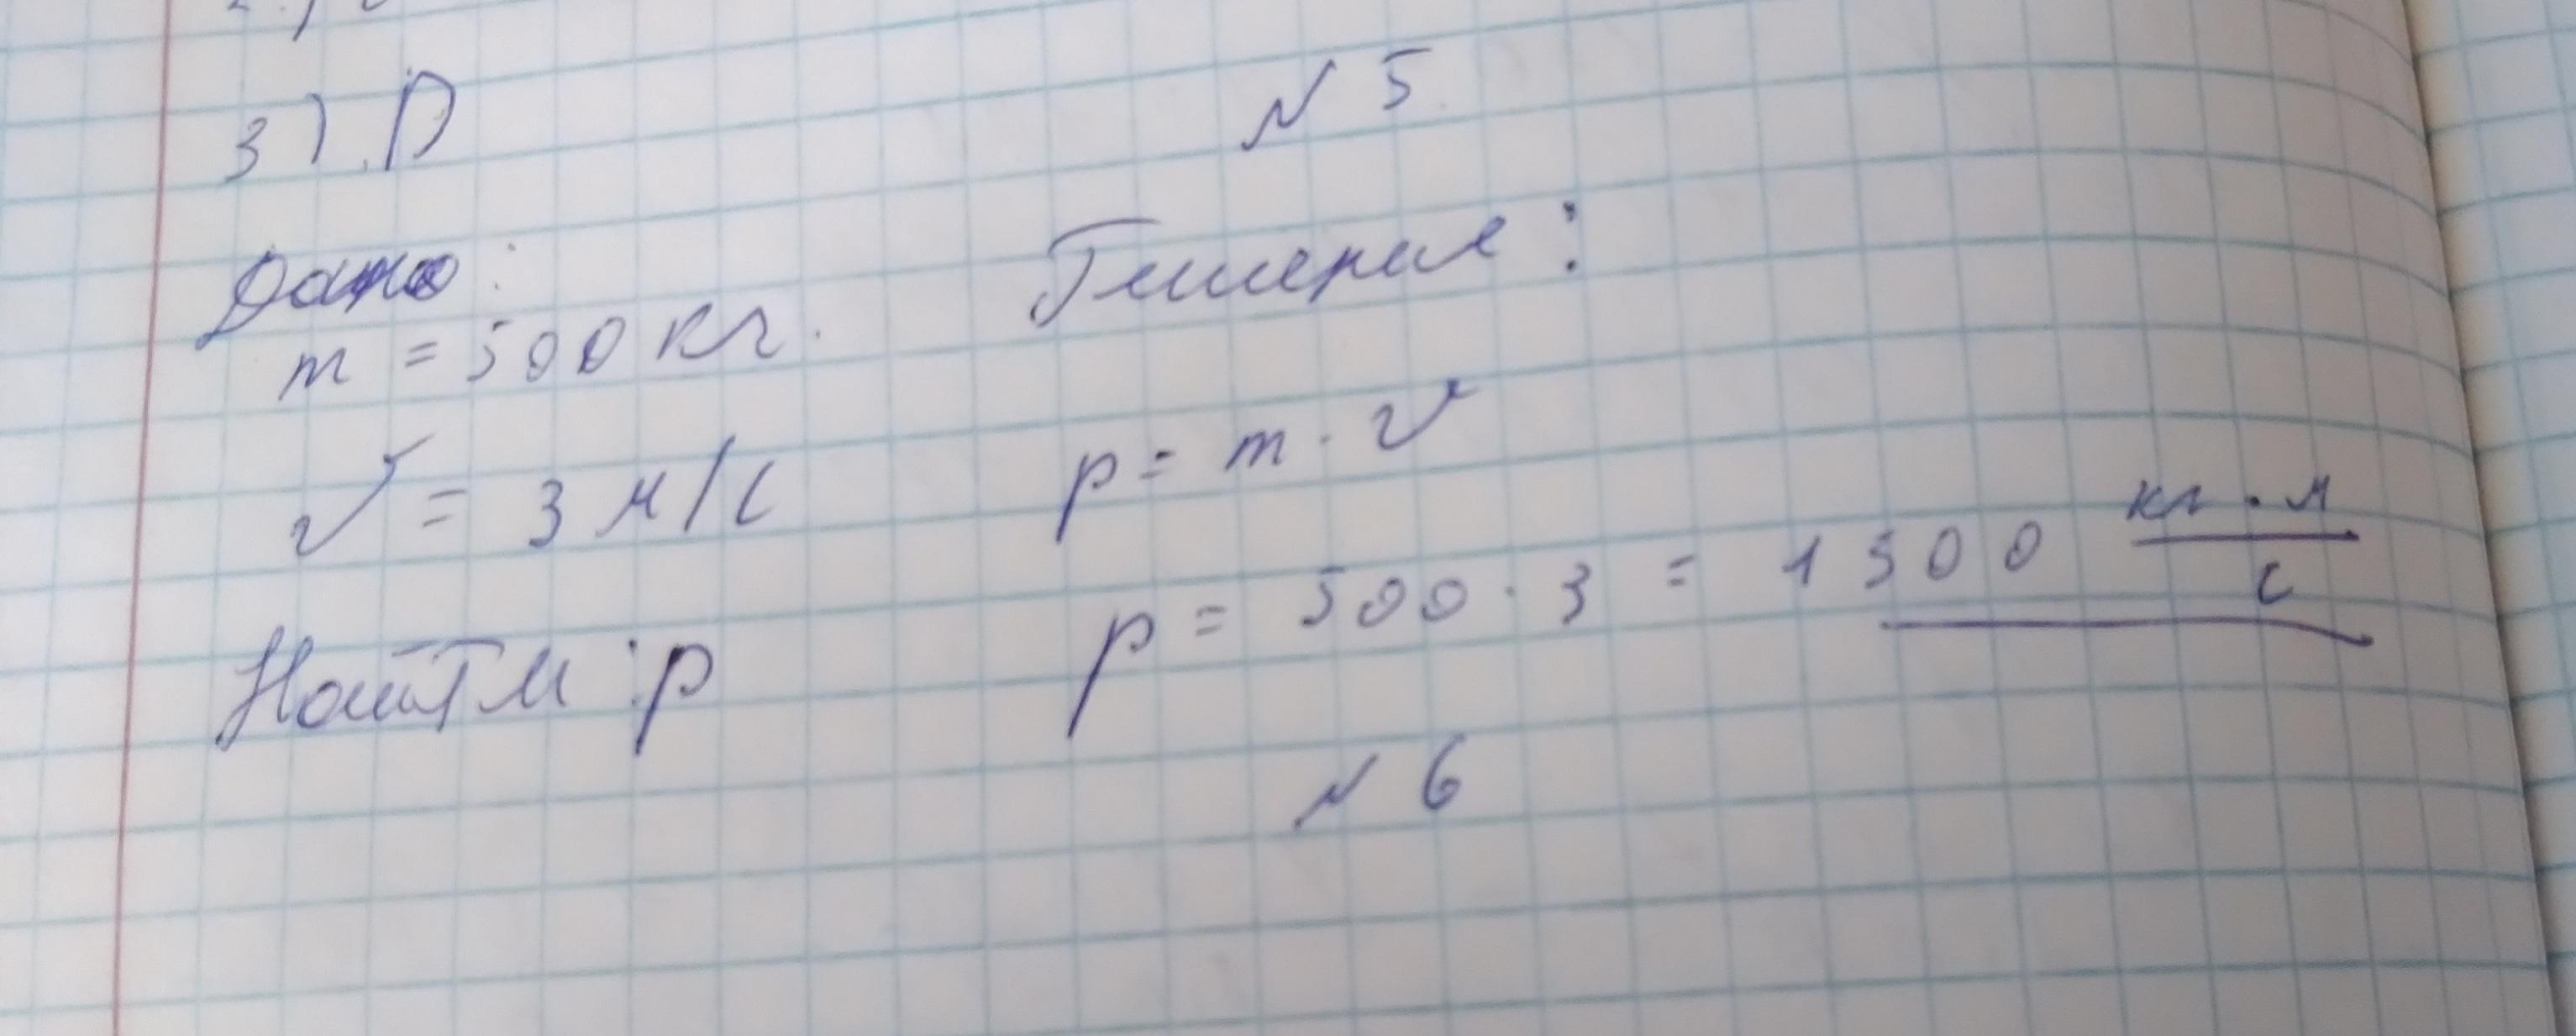 3) D
№ 5
Дано:
m = 500 кг.
v = 3 м/с
Найти: p
Решение:
p = m · v
p = 500 · 3 = 1500 кг · м / с
№ 6